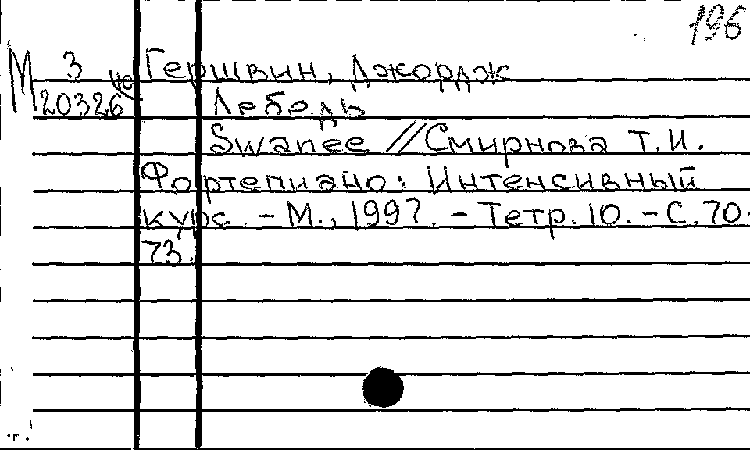 196
М 3 Гершвин, Джордж
20326 Лебедь
Swanee //Смирнова Т.И.
Фортепиано: Интенсивный
курс. - М., 1997. - Тетр. 10. - С. 70-
73.